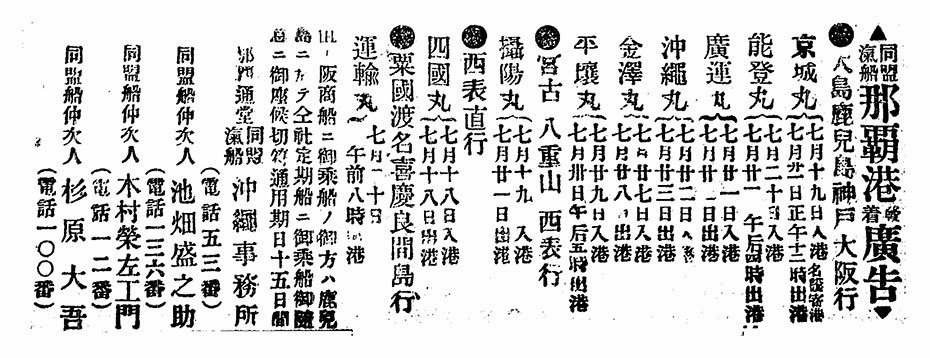 ▲同盟汽船那覇港發着廣告▼
●大島鹿兒島神戸大阪行
京城丸 七月十九日入港名護寄港
七月廿日正午十二時出港
能登丸 七月二十日入港
七月廿一 午后四時出港
廣運丸 七月廿一日入港
七月廿二日出港
沖繩丸 七月廿二日入港
七月廿三日出港
金澤丸 七月廿七日入港
七月廿八日出港
平壤丸 七月廿九入港
七月卅日午后五時出港
●宮古 八重山 西表行
攝陽丸 七月十九 入港
七月廿一日出港
●西表直行
四國丸 七月十八日入港
七月十八日出港
●粟國渡名喜慶良間島行
運輸丸 七月二十日
午前八時出港
阪商船ニ御乘船ノ御方ハ鹿兒
島ニ 社定期船ニ御乘船御隨
意ニ御座候切符通用期日十五日間
那覇通堂
同盟汽船 沖繩事務所
(電話五三番)
同盟船仲次人 池畑盛之助
(電話一三六番)
同盟船仲次人 木村榮左工門
(電話一二番)
同盟船仲次人 杉原大吾
(電話一〇〇番)